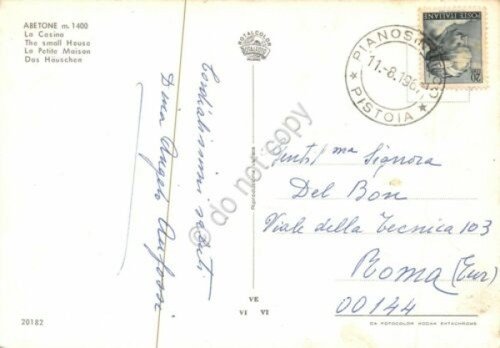 ABETONE m. 1400
La Casina
The small House
La Petite Maison
Das Häuschen
ROTALCOLOR
POSTE ITALIANE
PIANOSINATICO
11-8.196
PISTOIA
Cordialissimi saluti
Dina Angelo
Gent/ma Signora
Del Bon
Viale della Tecnica 103
Roma (Eur)
00144
© do not copy
VE
VI VI
20182
DA FOTOCOLOR KODAK EKTACHROME